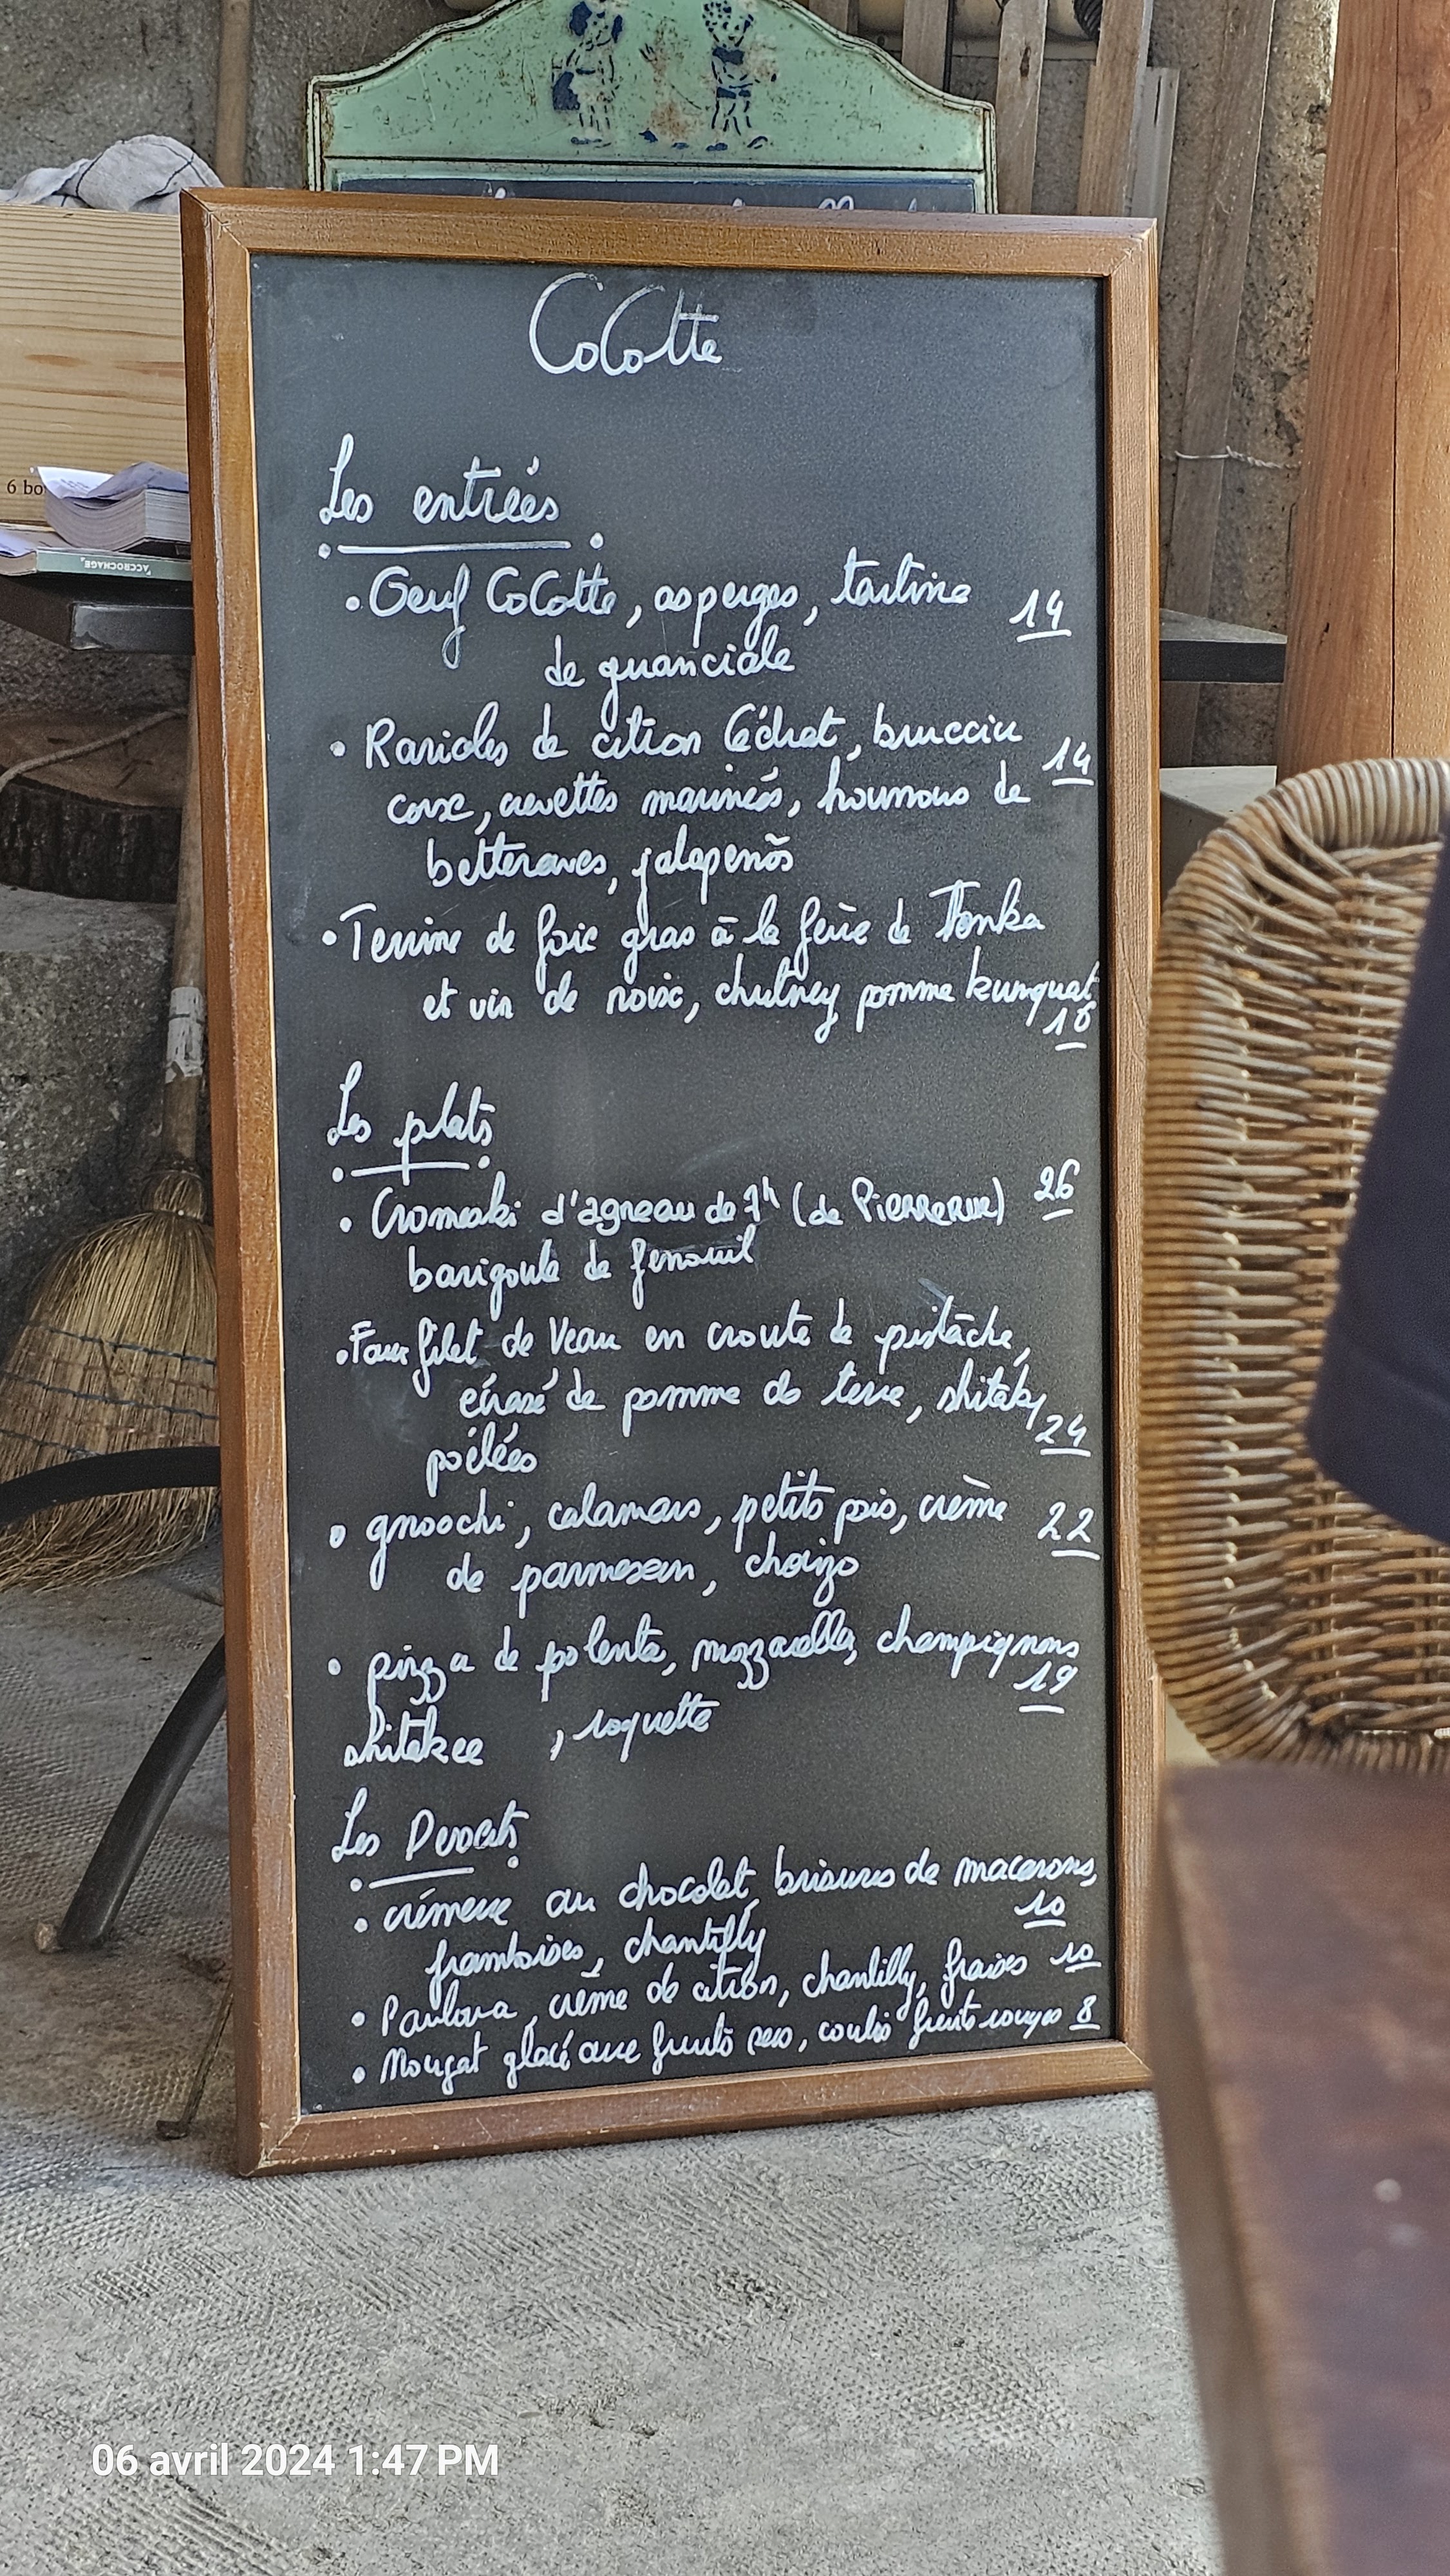 CoCotte
Les entrées
• Oeuf CoCotte, asperges, tartine 14
de guanciale
• Ravioles de citron Cédrat, brucciu 14
corse, crevettes marinées, houmous de
betteraves, jalapenõs
• Terrine de foie gras à la fève de Tonka
et vin de noix, chutney pomme kumquat
16
Les plats
• Cromeski d'agneau de 7h (de Pierrerue) 26
barigoule de fenouil
• Faux filet de Veau en croute de pistâche,
écrasé de pomme de terre, shitaky
24
poêlées
• gnocchi, calamars, petits pois, crème 22
de parmesan, chorizo
• pizza de polenta, mozzarella, champignons
19
shitakee , roquette
Les Desserts
• crémeux au chocolat, brisures de macarons,
10
framboises, chantilly
• Pavlova, crème de citron, chantilly, fraises 10
• Nougat glacé aux fruits secs, coulis fruits rouges 8
6 bo
ACCROCHAGE
06 avril 2024 1:47 PM